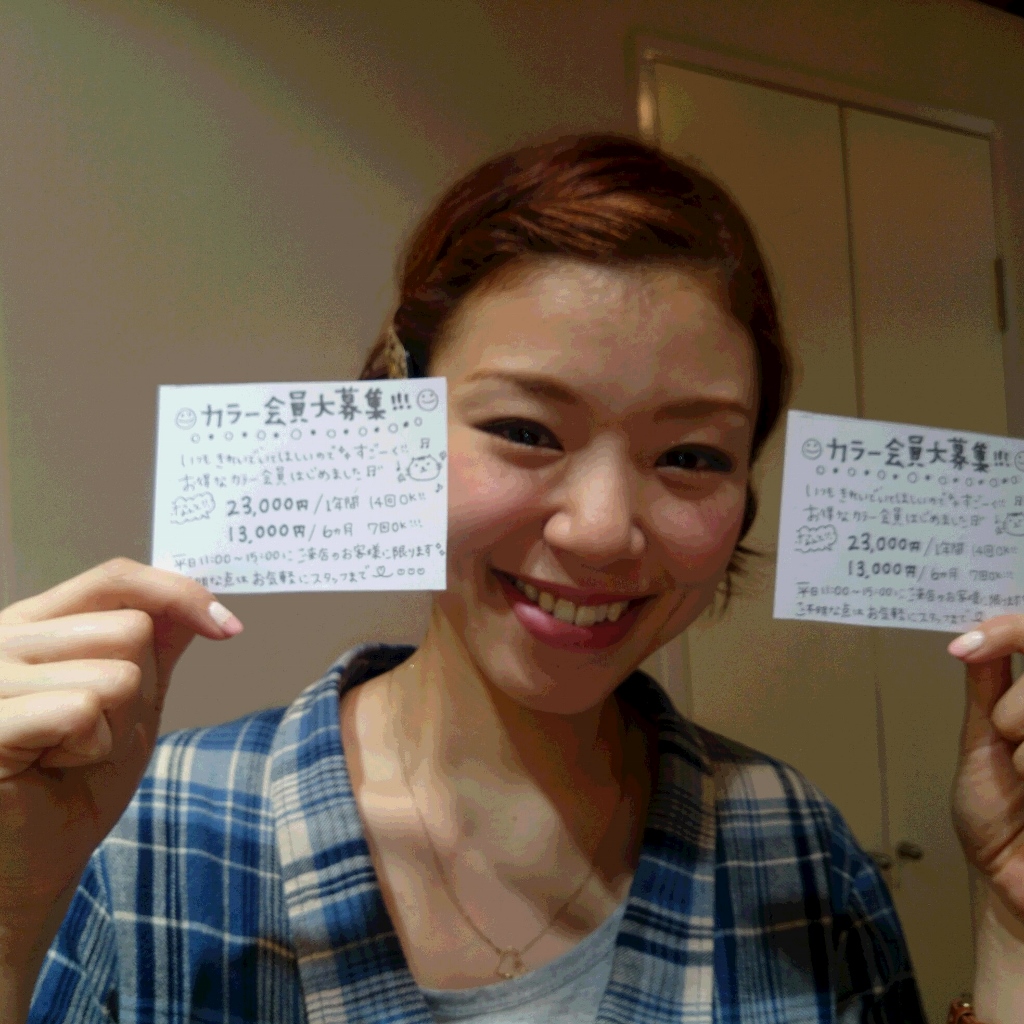 カラー会員大募集!!!
いつもきれいでいてほしいのですごーく!!
お得なカラー会員はじめました
23,000円/1年間 14回OK!!
13,000円/6ヵ月 7回OK!!!
平日11:00～15:00にご来店のお客様に限ります
な点はお気軽にスタッフまで
カラー会員大募集!!!
いつもきれいでいてほしいのですごーく!!
お得なカラー会員はじめました
23,000円/1年間 14回OK!!
13,000円/6ヵ月 7回OK!!!
平日11:00～15:00にご来店のお客様に限ります
ご不明な点はお気軽にスタッフまで